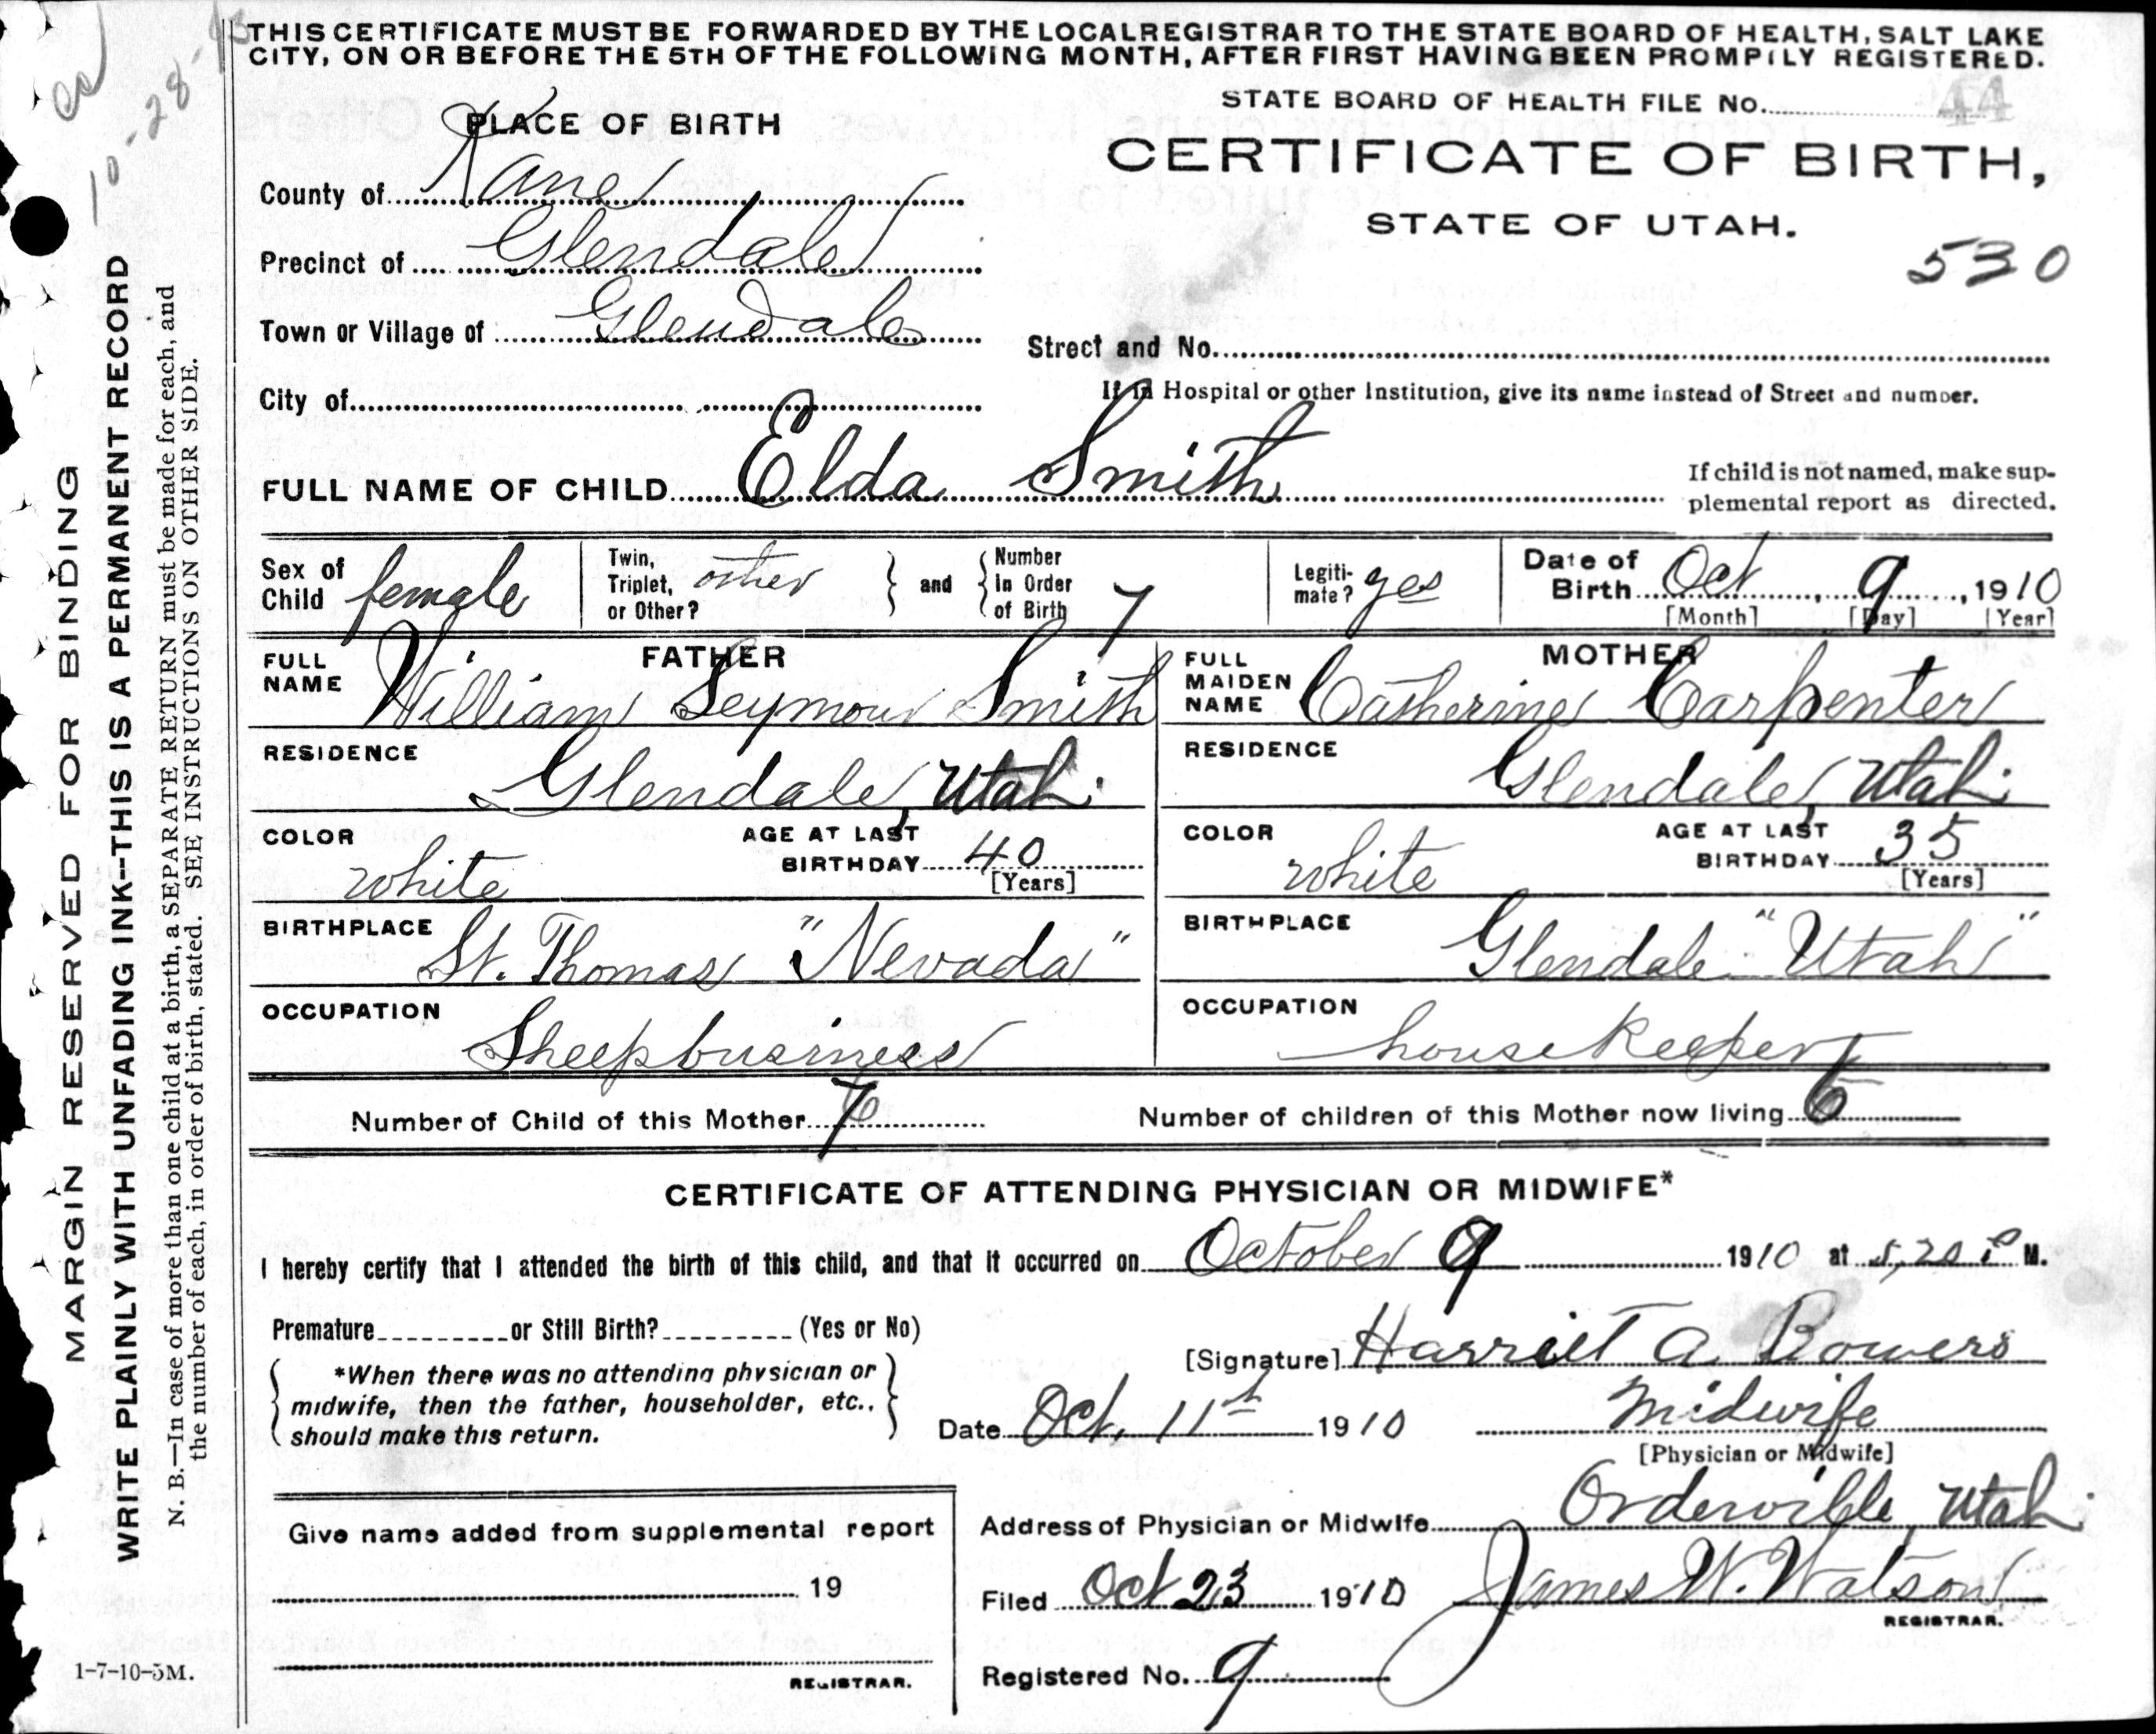 THIS CERTIFICATE MUST BE FORWARDED BY THE LOCAL REGISTRAR TO THE STATE BOARD OF HEALTH, SALT LAKE
CITY, ON OR BEFORE THE 5TH OF THE FOLLOWING MONTH, AFTER FIRST HAVING BEEN PROMPTLY REGISTERED.
10-28-
STATE BOARD OF HEALTH FILE No. 44
PLACE OF BIRTH
CERTIFICATE OF BIRTH,
STATE OF UTAH.
530
County of Kane
Precinct of Glendale
Town or Village of Glendale
Street and No.
City of
If in Hospital or other Institution, give its name instead of Street and number.
FULL NAME OF CHILD Elda Smith
If child is not named, make sup-
plemental report as directed.
Sex of Child female
Twin, Triplet, or Other? other
and Number in Order of Birth 7
Legiti-mate? yes
Date of Birth Oct, 9, 1910
[Month] [Day] [Year]
FATHER
FULL NAME William Seymour Smith
RESIDENCE Glendale, Utah.
COLOR white
AGE AT LAST BIRTHDAY 40
[Years]
BIRTHPLACE St. Thomas "Nevada"
OCCUPATION Sheepbusiness
MOTHER
FULL MAIDEN NAME Catherine Carpenter
RESIDENCE Glendale, Utah.
COLOR white
AGE AT LAST BIRTHDAY 35
[Years]
BIRTHPLACE Glendale "Utah"
OCCUPATION housekeeper
Number of Child of this Mother 7
Number of children of this Mother now living 6
CERTIFICATE OF ATTENDING PHYSICIAN OR MIDWIFE*
I hereby certify that I attended the birth of this child, and that it occurred on October 9 1910 at 5,20 P M.
Premature or Still Birth? (Yes or No)
[Signature] Harriet A Bowers
*When there was no attending physician or
midwife, then the father, householder, etc.,
should make this return.
Date Oct. 11th 1910
Midwife
[Physician or Midwife]
Give name added from supplemental report
19
REGISTRAR.
Address of Physician or Midwife Orderville, Utah.
Filed Oct 23 1910 James W. Watson
REGISTRAR.
Registered No. 9
MARGIN RESERVED FOR BINDING
WRITE PLAINLY WITH UNFADING INK--THIS IS A PERMANENT RECORD
N. B.—In case of more than one child at a birth, a SEPARATE RETURN must be made for each, and
the number of each, in order of birth, stated. SEE INSTRUCTIONS ON OTHER SIDE.
1-7-10-5M.